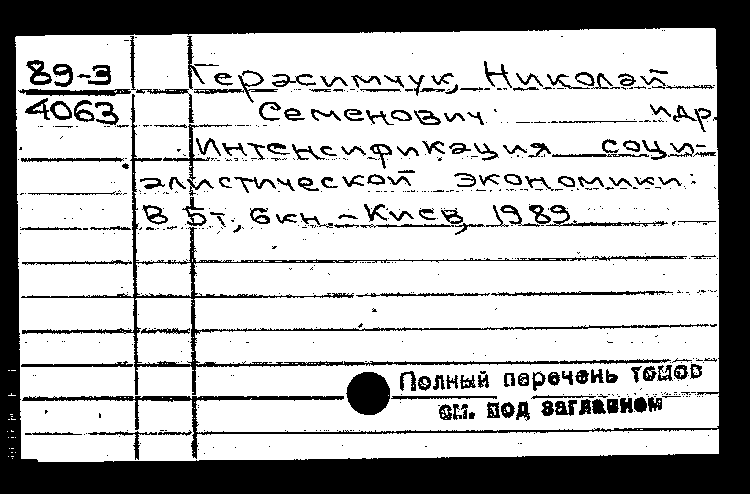 89-3
4063
Герасимчук, Николай
Семенович и др.
Интенсификация соци-
алистической экономики:
В 5т, 6кн. - Киев, 1989.
Полный перечень томов
см. под заглавием